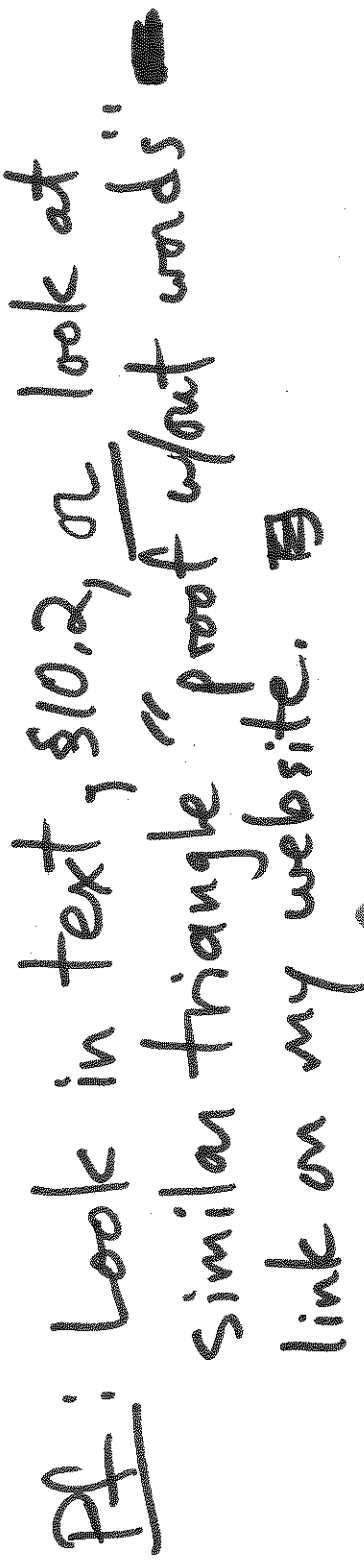 Pf: Look in text, §10.2, or look at
similar triangle "proof w/out words"
link on my website.